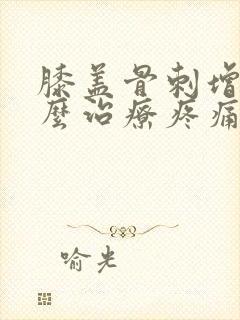 膝盖骨刺增
麽治療疼痛
喻光